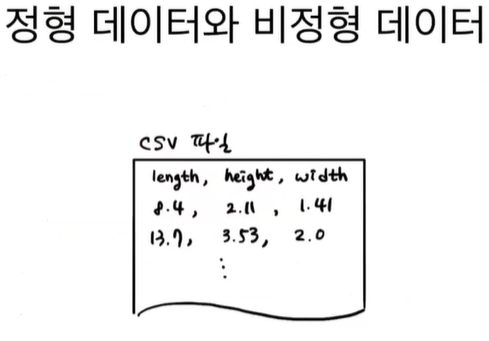 정형 데이터와 비정형 데이터
CSV 파일
length, height, width
8.4, 2.11, 1.41
13.7, 3.53, 2.0
⋮